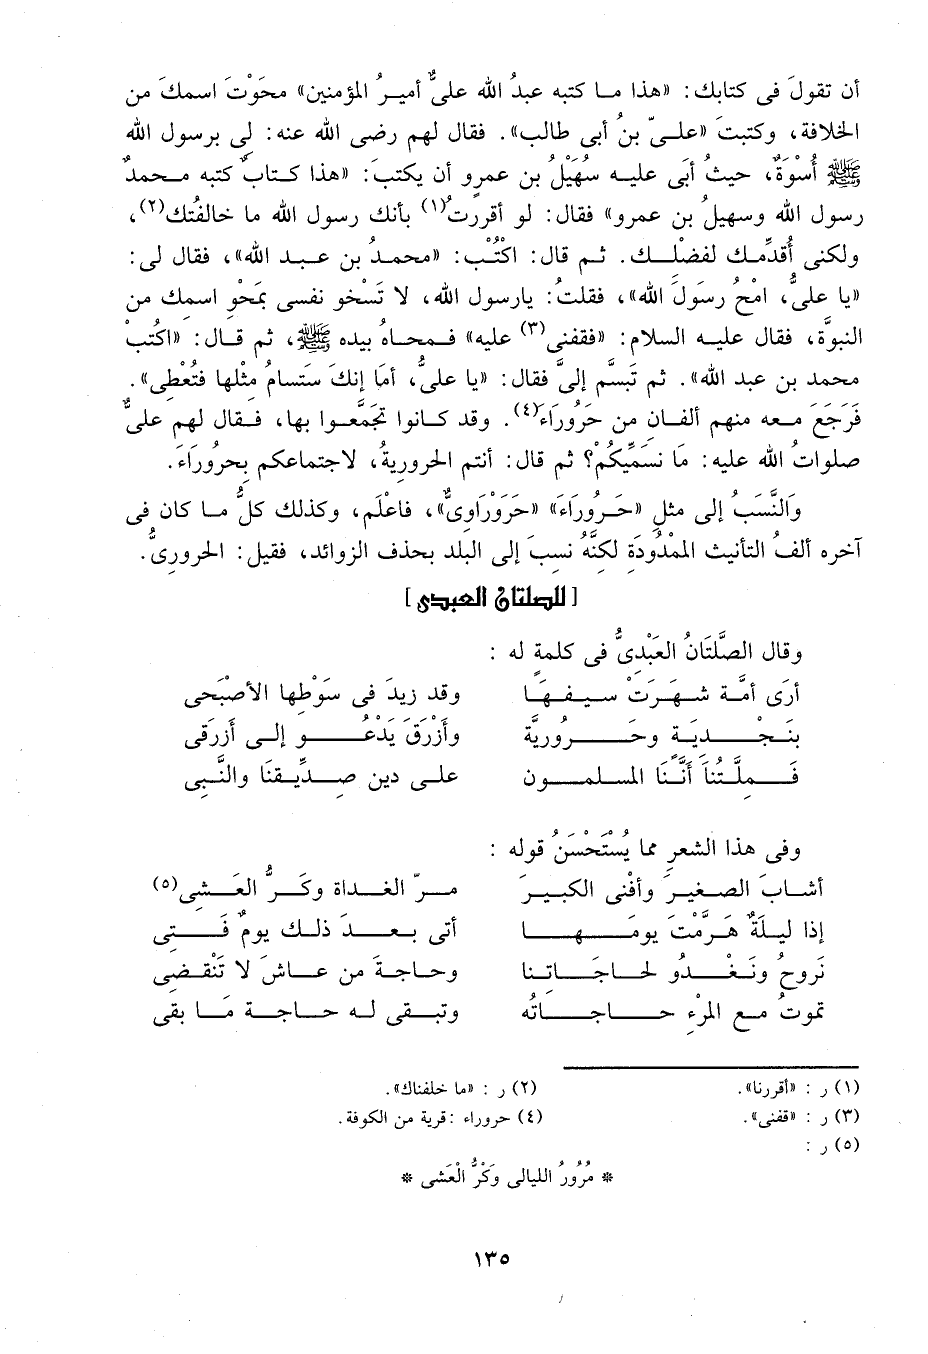 أن تقولَ فى كتابك: «هذا مـا كتبه عبدُ الله علىٌّ أميـرُ المؤمنين» محَوْتَ اسمكَ من
الخلافة، وكتبتَ «علـىّ بنُ أبى طالب». فقال لهم رضى الله عنه: لى برسول الله
ﷺ أُسْوَةٌ، حيثُ أبَى عليـه سُهَيْلُ بن عمرو أن يكتبَ: «هذا كـتابٌ كتبه مـحمدٌ
رسول الله وسهيلُ بن عمرو» فقال: لو أقررتُ(١) بأنك رسول الله ما خالفتُك(٢)،
ولكنى أُقدِّمـك لفضْلِـك. ثـم قال: اكتُب: «محمدُ بن عبـد الله»، فقال لى:
«يا علىُّ، امْحُ رسولَ الله»، فقلتُ: يارسول الله، لا تَسْخو نفسى بمَحْوِ اسمك من
النبوَّة، فقال عليـه السلام: «فقفنى(٣) عليه» فـمحـاهُ بيده ﷺ، ثم قـال: «اكْتُب
محمد بن عبد الله». ثم تبسَّم إلىَّ فقال: «يا علىُّ، أمَا إنكَ ستُسامُ مثلها فتُعْطِى».
فَرجَعَ مـعه منهم ألفـان من حَرُورَاءَ(٤). وقد كـانوا تجمَّعـوا بها، فـقال لهم علىٌّ
صلواتُ الله عليه: ما نسمِّيكُمْ؟ ثم قال: أنتم الحرورية، لاجتماعكم بحرُورَاءَ.
وَالنَّسَبُ إلى مثلِ «حَـرُورَاءَ» «حَرَوْرَاوِىٌّ»، فاعْلَم، وكذلك كلُّ مـا كان فى
آخره ألفُ التأنيث الممْدُودَة لكنَّه نُسِبَ إلى البلد بحذف الزوائد، فقيل: الحرورىُّ.
[ للصلتان العبدى ]
وقال الصَّلَتَانُ العَبْدِىُّ فى كلمة له :
أرَى أمَّـة شَـهـرَتْ سـيـفـهـا وقد زيدَ فى سَوْطها الأصْبَحى
بنَـجْـدِيَّـة وحَـرُوريَّة وأزْرَق يَدْعُـو إلى أزرَقى
فَـملَّتُنا أنَّـنا المسلمـون علـى دين صدِّيـقنَا والنَّبى
وفى هذا الشعر مما يُسْتَحْسَنُ قوله :
أشـابَ الصـغيـرَ وأفْنى الكبيـرَ مـرُّ الغـداة وكـرُّ العَـشـى(٥)
إذا ليـلةٌ هَـرَّمَتْ يومَـهـا أتى بـعـد ذلـك يومٌ فَـتـى
نَروحُ ونَـغْـدُو لحَـاجَـاتـنا وحَـاجـة من عـاشَ لا تَنْقَـضى
تموتُ مـع المرْءِ حـاجـاتُه وتبـقى لـه حـاجـة مَـا بقى
(١) ر : «أقررنا».
(٢) ر : «ما خلفناك».
(٣) ر : «قفنى».
(٤) حروراء : قرية من الكوفة.
(٥) ر :
* مُرُورُ الليالى وَكَرُّ الْعَشى *
١٣٥